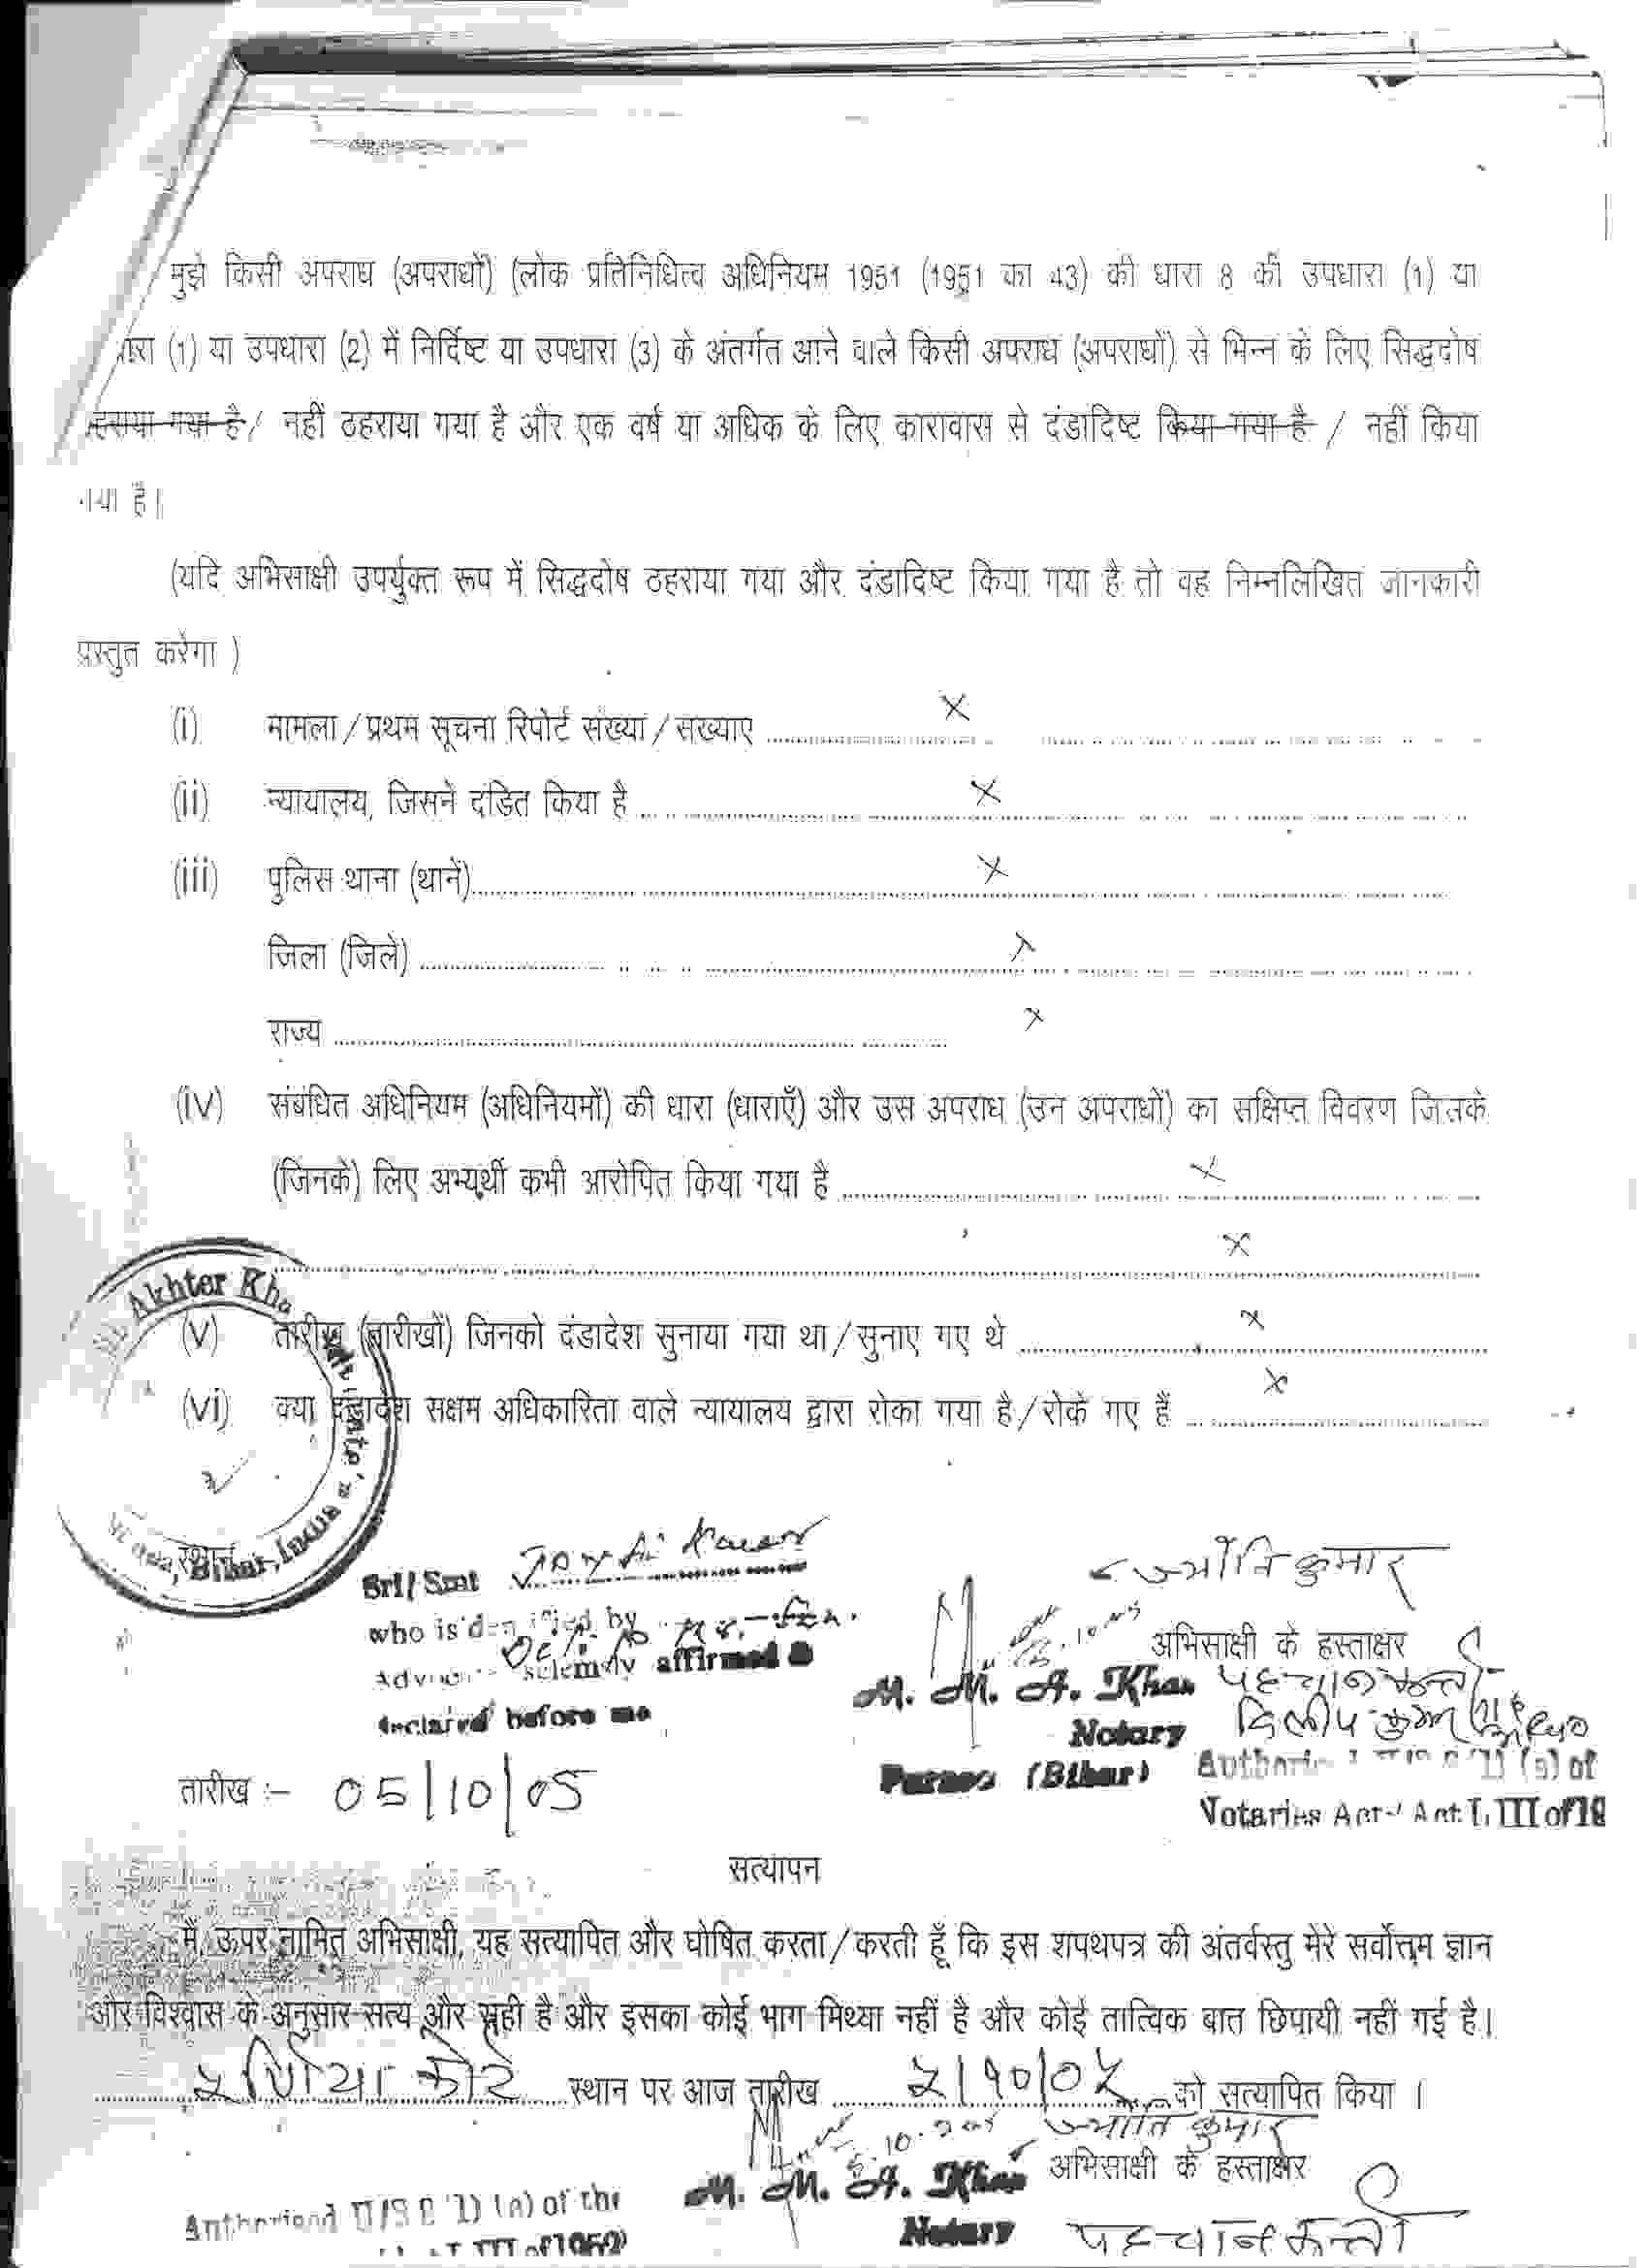 मुझे किसी अपराध (अपराधों) (लोक प्रतिनिधित्व अधिनियम 1951 (1951 का 43) की धारा 8 की उपधारा (1) या
(1) या उपधारा (2) में निर्दिष्ट या उपधारा (3) के अंतर्गत आने वाले किसी अपराध (अपराधों) से भिन्न के लिए सिद्धदोष
हराया गया है / नहीं ठहराया गया है और एक वर्ष या अधिक के लिए कारावास से दंडादिष्ट किया गया है / नहीं किया
गया है।
(यदि अभिसाक्षी उपर्युक्त रूप में सिद्धदोष ठहराया गया और दंडादिष्ट किया गया है तो वह निम्नलिखित जानकारी
प्रस्तुत करेगा )
(i) मामला/प्रथम सूचना रिपोर्ट संख्या/संख्याए ........ X
(ii) न्यायालय, जिसने दंडित किया है ........ X
(iii) पुलिस थाना (थाने) ........ X
जिला (जिले) ........ X
राज्य ........ X
(iv) संबंधित अधिनियम (अधिनियमों) की धारा (धाराएँ) और उस अपराध (उन अपराधों) का संक्षिप्त विवरण जिसके
(जिनके) लिए अभ्यर्थी कभी आरोपित किया गया है ........ X
........ X
Akhter Kha
(v) तारीख (तारीखों) जिनको दंडादेश सुनाया गया था/सुनाए गए थे ........ X
(vi) क्या दंडादेश सक्षम अधिकारिता वाले न्यायालय द्वारा रोका गया है/रोके गए हैं ........ X
स्थान
Bihar, India
ज्योति कुमार
Sri/Smt
who is identified by
अभिसाक्षी के हस्ताक्षर
Advocate solemnly affirmed
M. M. A. Khan
पहचानकर्त्ता
declared before me
Notary
दिलीप कुमार
Purnea (Bihar)
(1) (a) of
तारीख :- 05/10/05
Notaries Act
सत्यापन
मैं, ऊपर नामित अभिसाक्षी, यह सत्यापित और घोषित करता/करती हूँ कि इस शपथपत्र की अंतर्वस्तु मेरे सर्वोत्तम ज्ञान
और विश्वास के अनुसार सत्य और सही है और इसका कोई भाग मिथ्या नहीं है और कोई तात्विक बात छिपायी नहीं गई है।
पूर्णिया कोर्ट स्थान पर आज तारीख ५/१०/०५ को सत्यापित किया ।
ज्योति कुमार
अभिसाक्षी के हस्ताक्षर
M. M. A. Khan
Authorised U/S 8 (1) (a) of the
Notary
पहचानकर्त्ता